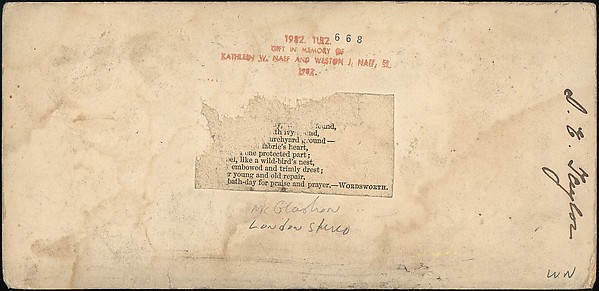 1982. 1182. 668
GIFT IN MEMORY OF
KATHLEEN W. NAEF AND WESTON J. NAEF, SR.
1982.
ound,
th ivy
urchyard ground—
fabric's heart,
one protected part;
el, like a wild-bird's nest,
embowed and trimly drest;
young and old repair,
bath-day for praise and prayer.—WORDSWORTH.
McGlashon
London Stereo
WN